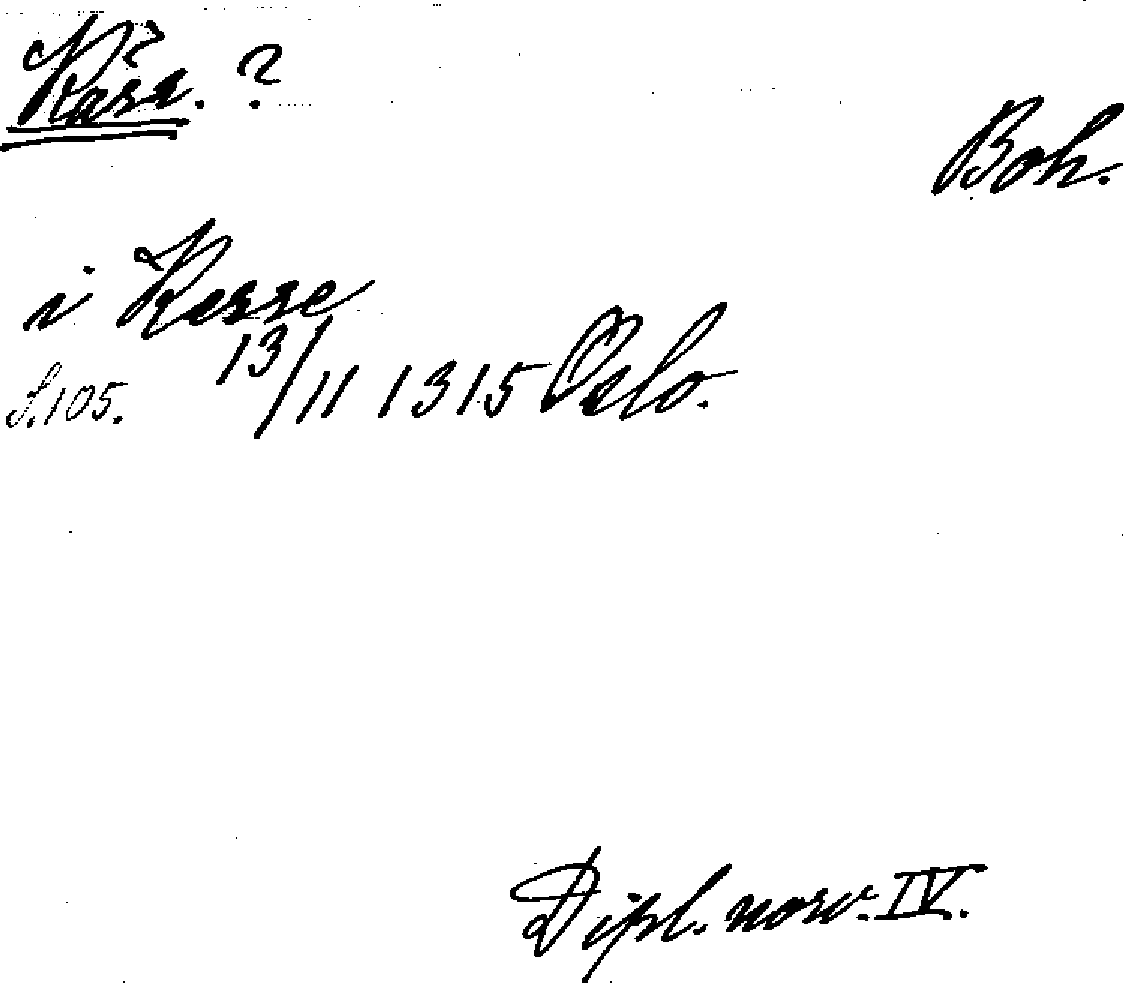 Kåsa. ?
Boh.
i Kesse
13/11 1315 Oslo.
S. 105.
Dipl. norv. IV.